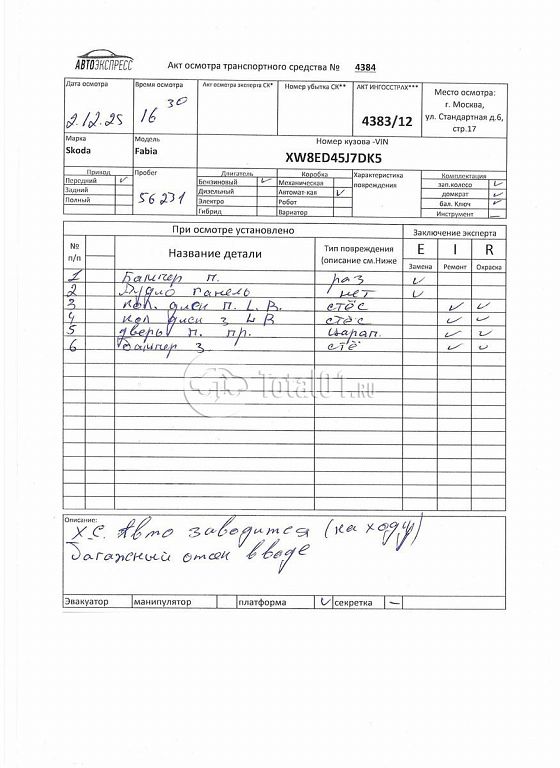 АВТОЭКСПРЕСС
Акт осмотра транспортного средства № 4384
Дата осмотра Время осмотра Акт осмотра эксперта СК* Номер убытка СК** АКТ ИНГОССТРАХ***
2.12.25 16 30 4383/12
Место осмотра:
г. Москва,
ул. Стандартная д.6,
стр.17
Марка Модель Номер кузова -VIN
Skoda Fabia XW8ED45J7DK5
Привод Пробег Двигатель Коробка Характеристика повреждения Комплектация
Передний ✓ 56231 Бензиновый ✓ Механическая зап.колесо ✓
Задний Дизельный Автомат-кая ✓ домкрат ✓
Полный Электро Робот бал. Ключ ✓
Гибрид Вариатор Инструмент —
При осмотре установлено Заключение эксперта
№ п/п Название детали Тип повреждения (описание см.Ниже E I R
Замена Ремонт Окраска
1 Бампер п. раз ✓
2 Аудио панель нет ✓
3 кол. диски п. L.R. стёс ✓ ✓
4 кол диски з LR стёс ✓ ✓
5 дверь п. пр. царап. ✓ ✓
6 бампер з. стё ✓ ✓
Total01.RU
Описание:
Х.С. Авто заводится (на ходу)
багажный отсек в воде
Эвакуатор манипулятор платформа ✓ секретка —